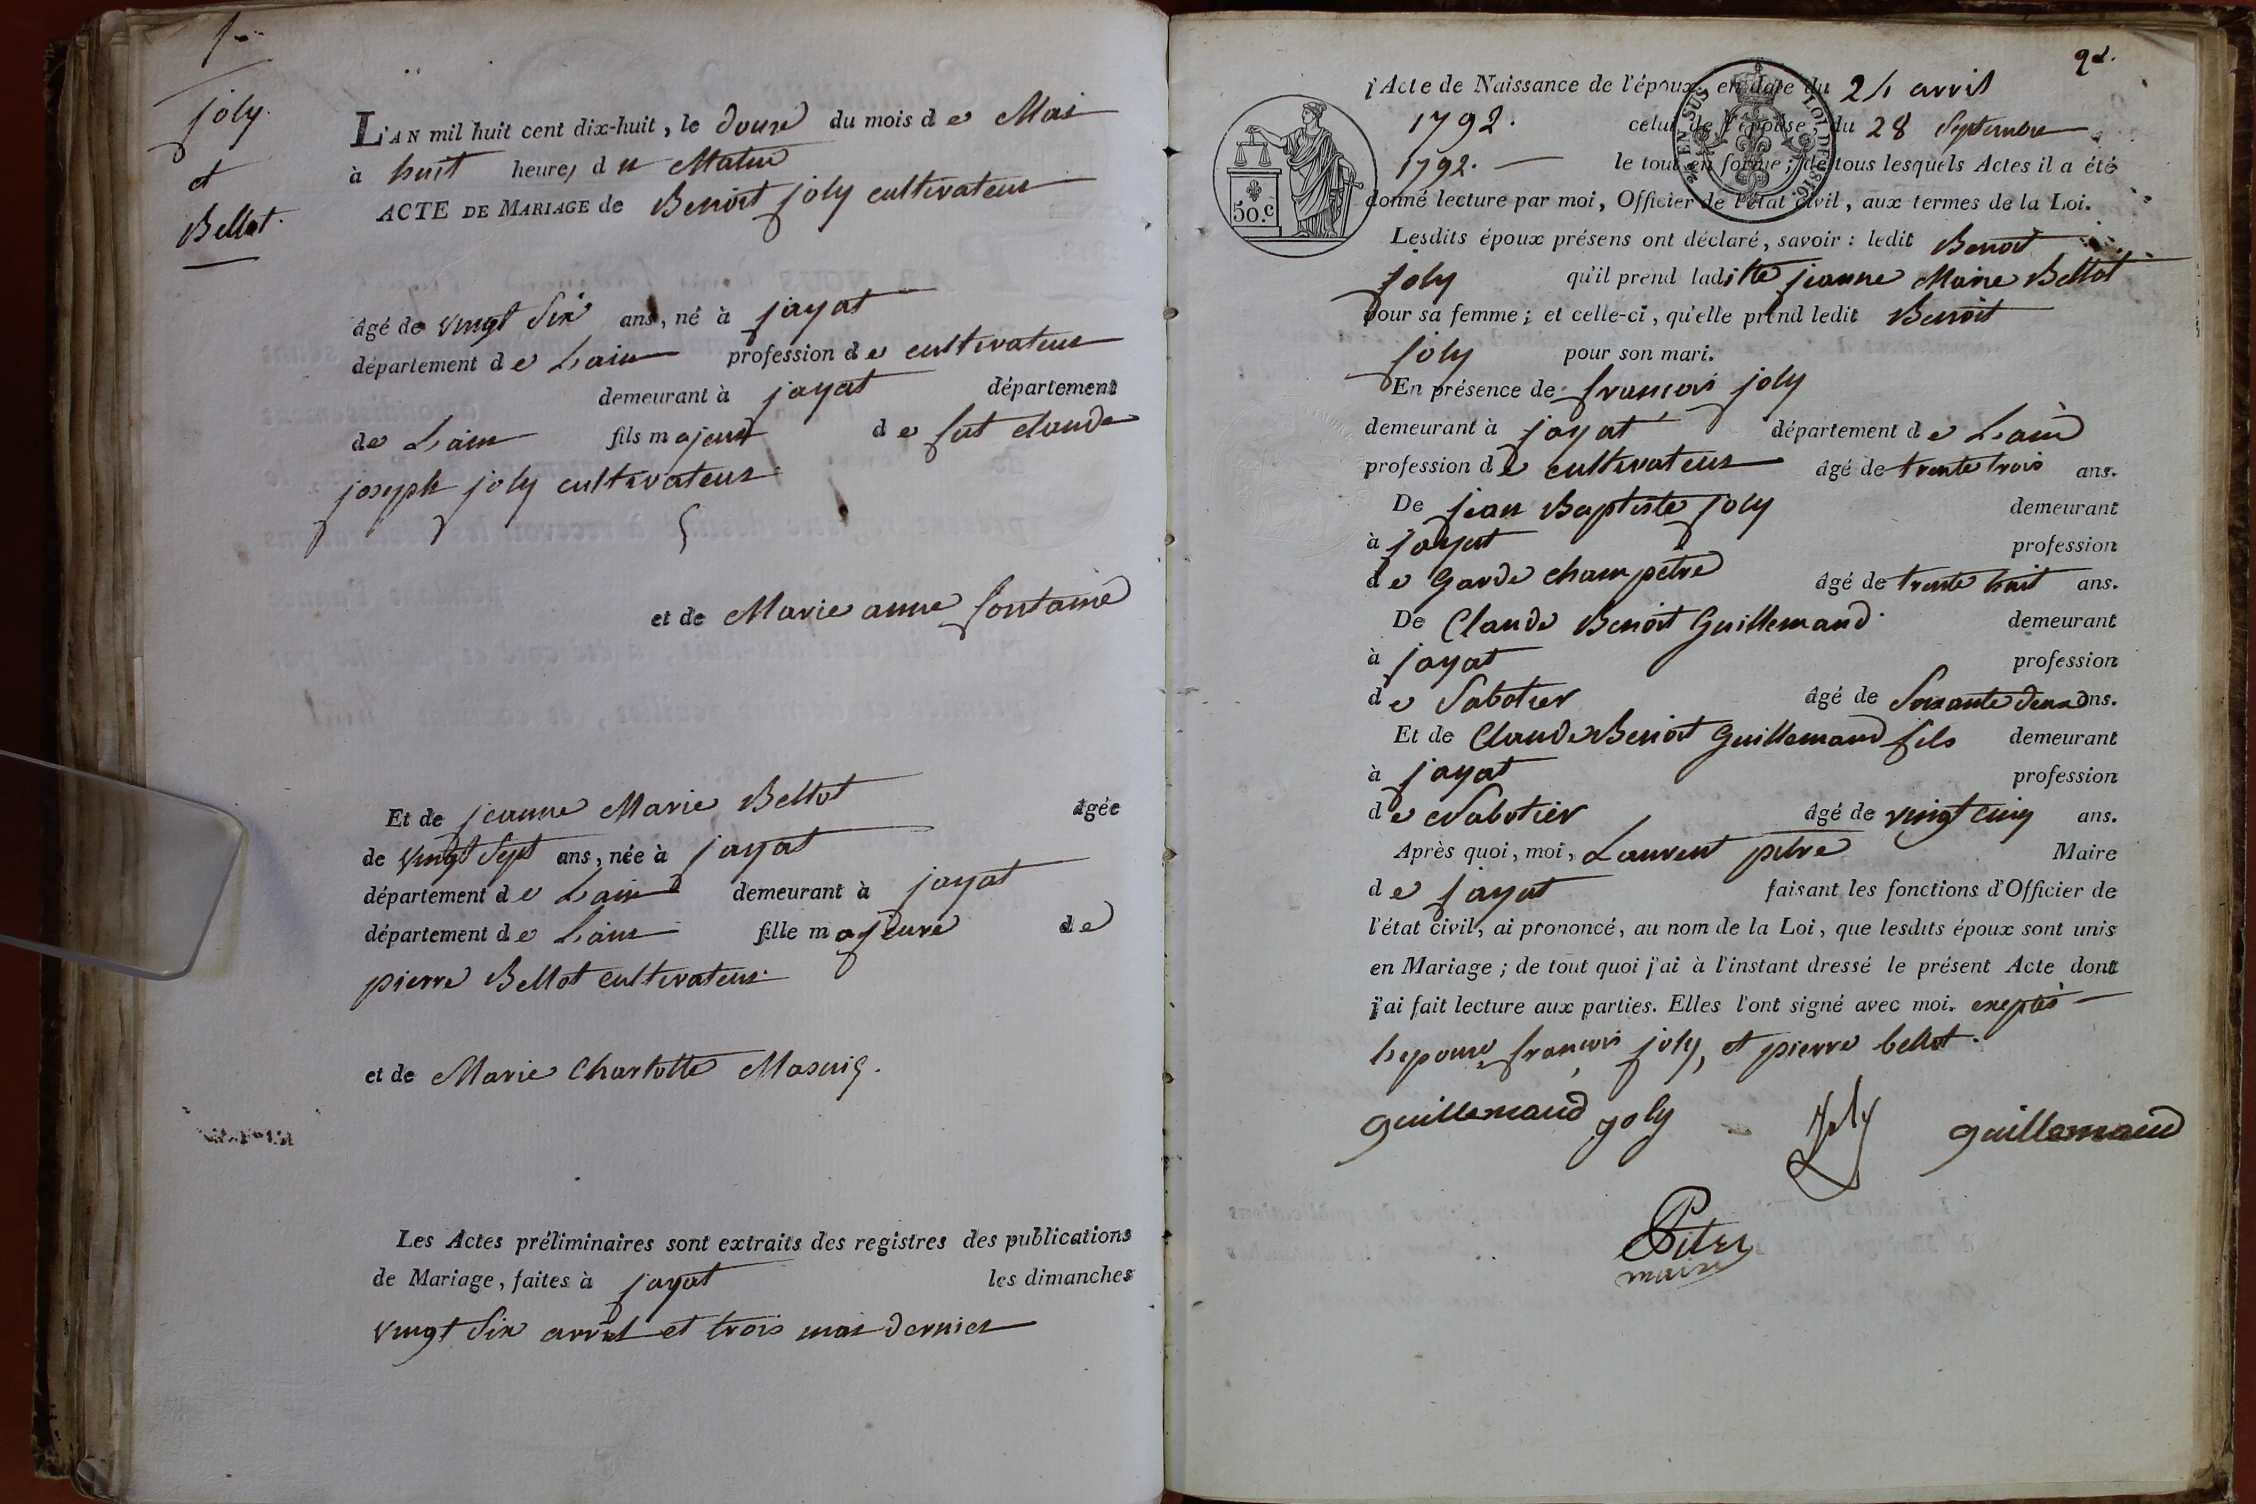 1
joly
et
Bellot.
L'AN mil huit cent dix-huit, le douze du mois de Mai
à huit heures du Matin
ACTE DE MARIAGE de Benoit joly cultivateur
âgé de vingt Six ans, né à jayat
département de Lain profession de cultivateur
demeurant à jayat département
de Lain fils majeur de fut claude
joseph joly cultivateur
et de Marie anne fontaine
Et de jeanne Marie Bellot âgée
de vingt Sept ans, née à jayat
département de Lain demeurant à jayat
département de Lain fille majeure de
pierre Bellot cultivateur
et de Marie Charlotte
Les Actes préliminaires sont extraits des registres des publications
de Mariage, faites à jayat les dimanches
vingt Six avril et trois mai dernier
2e.
l'Acte de Naissance de l'époux, en date du 24 avril
1792. celui de l'épouse, du 28 Septembre
1792. le tout en forme; de tous lesquels Actes il a été
donné lecture par moi, Officier de l'état civil, aux termes de la Loi.
EN SUS LOI DE 1816.
50.c
Lesdits époux présens ont déclaré, savoir : ledit Benoit
joly qu'il prend laditte jeanne Marie Bellot
pour sa femme; et celle-ci, qu'elle prend ledit Benoit
joly pour son mari.
En présence de françois joly
demeurant à jayat département de Lain
profession de cultivateur âgé de trente trois ans.
De jean Baptiste joly demeurant
à jayat profession
de Garde champêtre âgé de trente huit ans.
De Claude Benoit Guillemaud demeurant
à jayat profession
de Sabotier âgé de Soixante deux ans.
Et de Claude Benoit Guillemaud fils demeurant
à jayat profession
de Sabotier âgé de vingt cinq ans.
Après quoi, moi, Laurent pitre Maire
de jayat faisant les fonctions d'Officier de
l'état civil, ai prononcé, au nom de la Loi, que lesdits époux sont unis
en Mariage; de tout quoi j'ai à l'instant dressé le présent Acte dont
j'ai fait lecture aux parties. Elles l'ont signé avec moi. exeptés
lepouse françois joly, et pierre bellot.
guillemaud joly Joly guillemaud
Pitre
maire